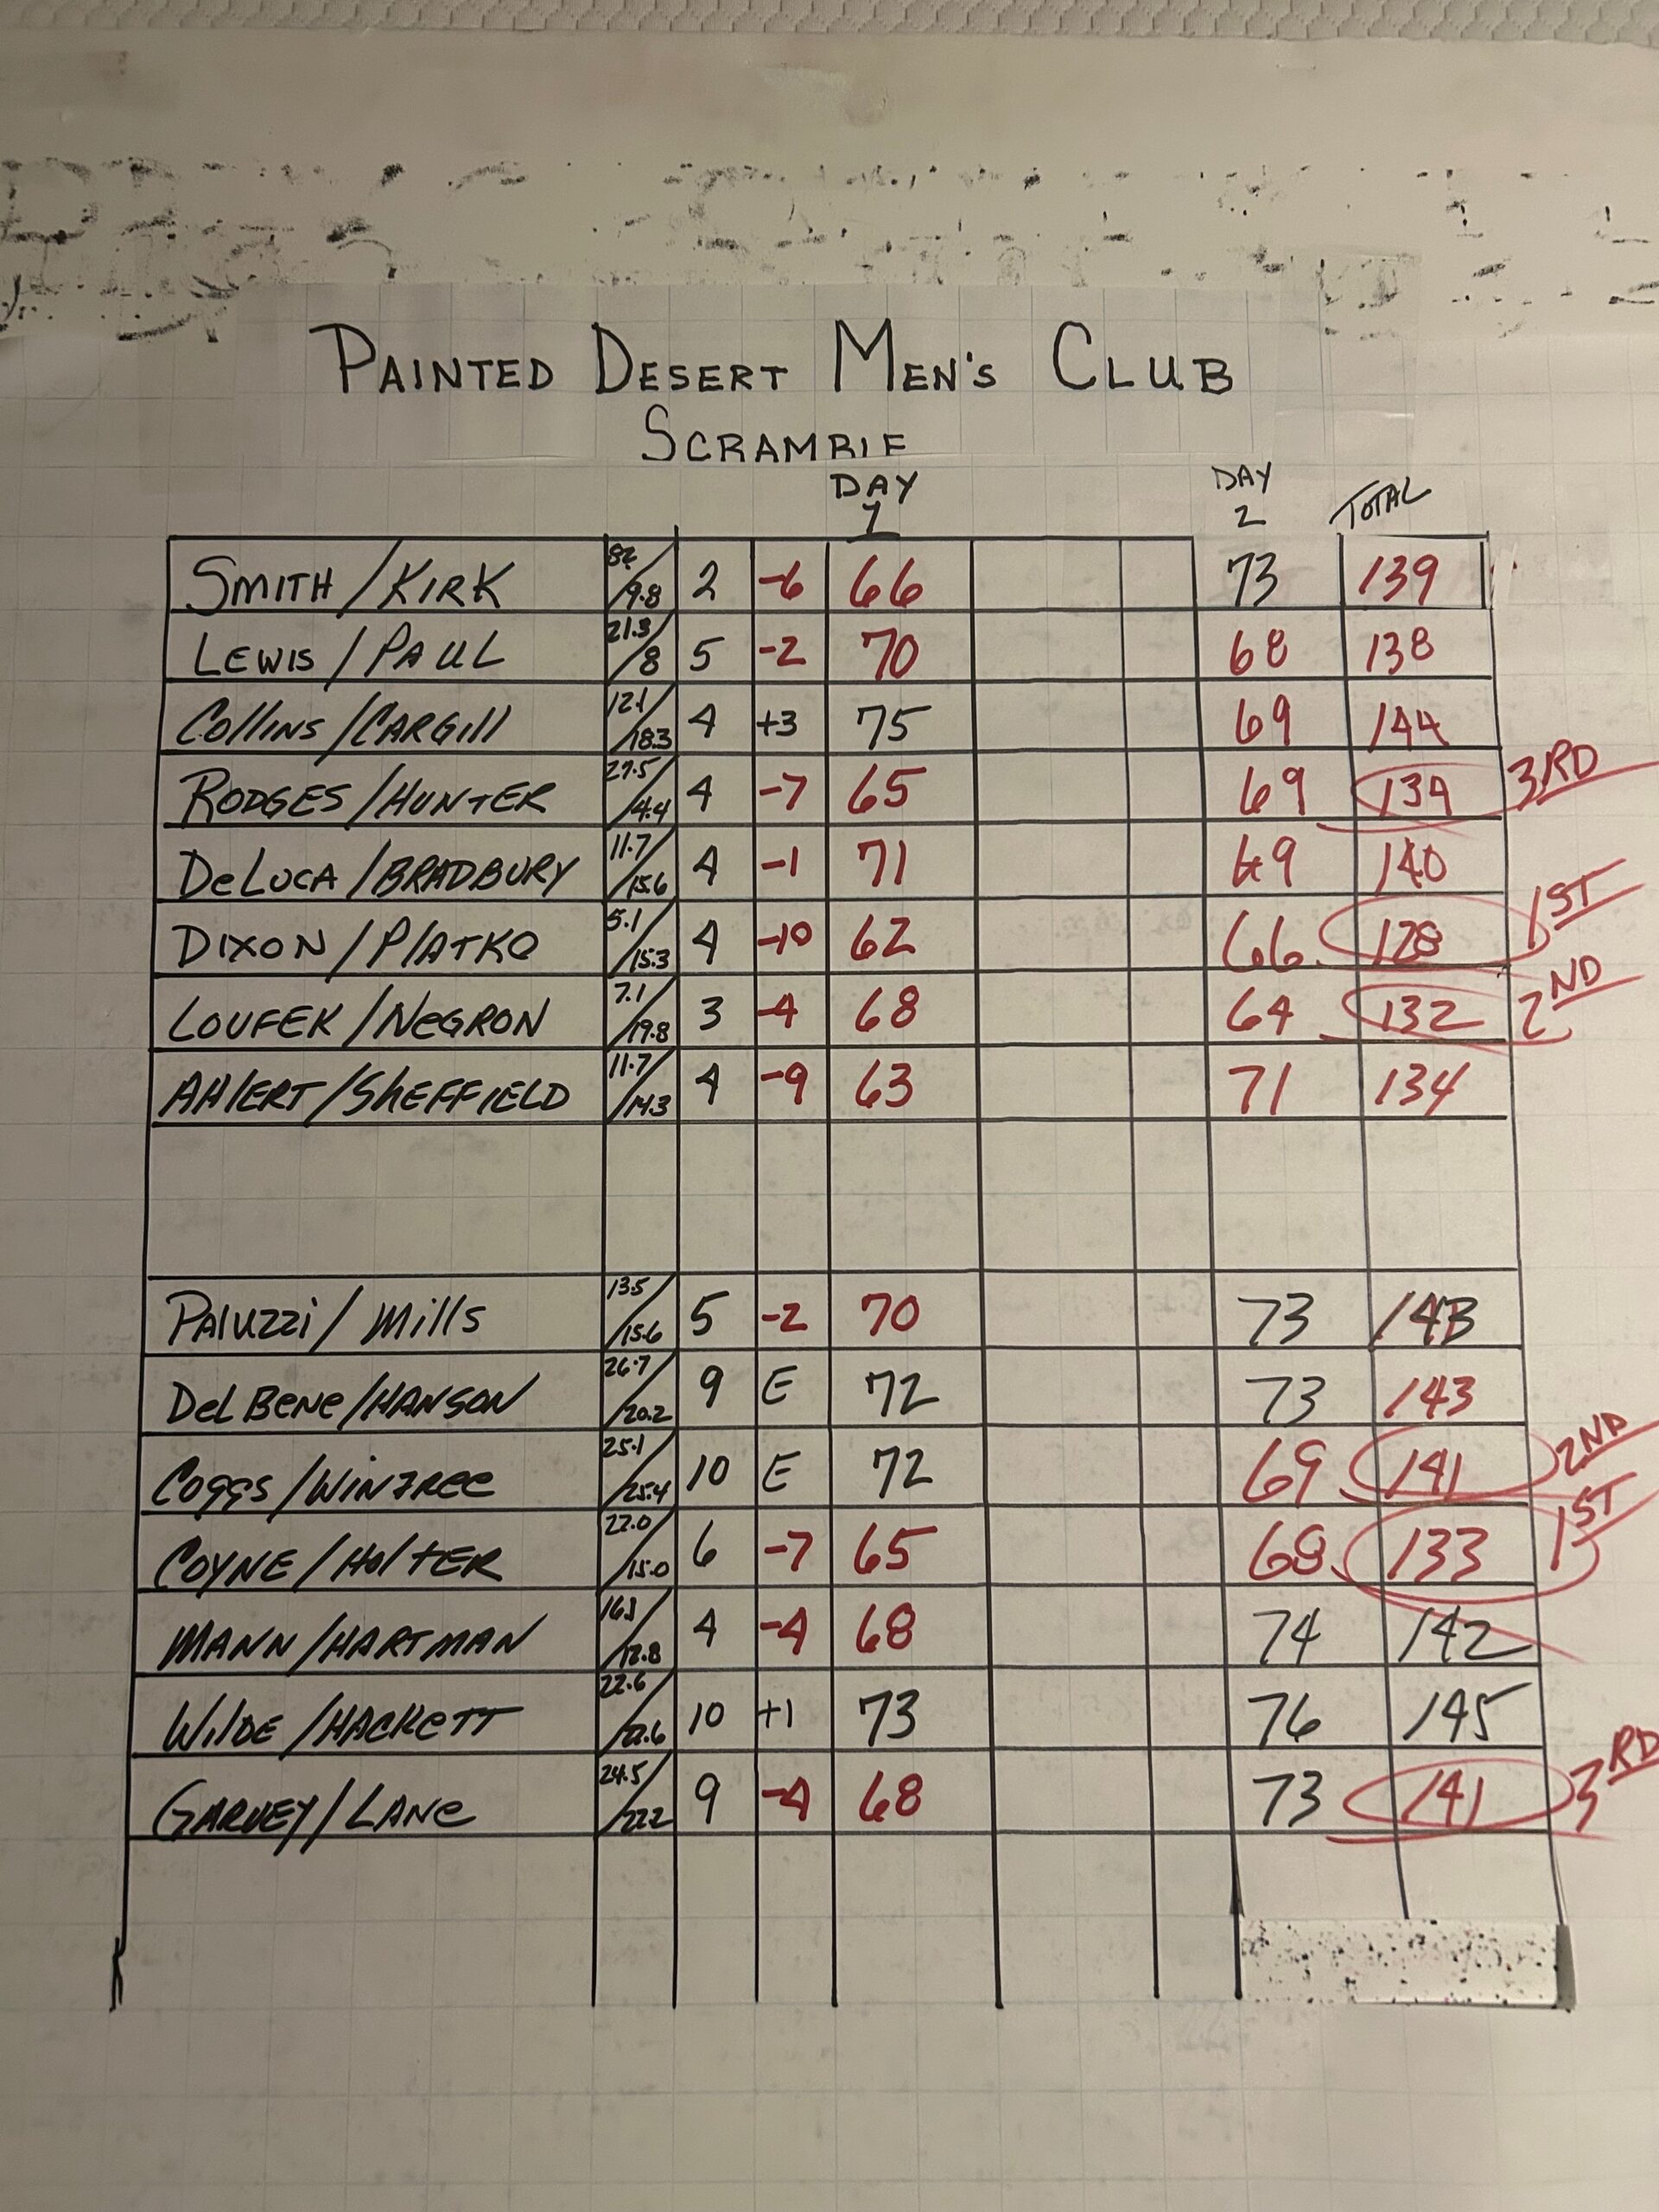 PAINTED DESERT MEN'S CLUB
SCRAMBLE
DAY 1 DAY 2 TOTAL
SMITH / KIRK 8.2/9.8 2 -6 66 73 139
LEWIS / PAUL 21.3/8 5 -2 70 68 138
Collins / CARGIll 12.1/18.3 4 +3 75 69 144
RODGES / HUNTER 27.5/4.4 4 -7 65 69 134 3RD
DeLUCA / BRADBURY 11.7/15.6 4 -1 71 69 140
DIXON / PlATKO 5.1/15.3 4 -10 62 66 128 1ST
LOUFEK / NeGRON 7.1/19.8 3 -4 68 64 132 2ND
AHlERT / SHEFFIELD 11.7/14.3 4 -9 63 71 134
PAlUZZi / Mills 13.5/15.6 5 -2 70 73 143
Del Bene / HANSON 26.7/20.2 9 E 72 73 143
Coggs / WINFRee 25.1/25.4 10 E 72 69 141 2ND
COYNE / HolTER 22.0/15.0 6 -7 65 68 133 1ST
MANN / HARTMAN /12.8 4 -4 68 74 142
WilDE / HACKeTT 22.6/22.6 10 +1 73 76 145
GARVEY / LANe 24.5/22.2 9 -4 68 73 141 3RD